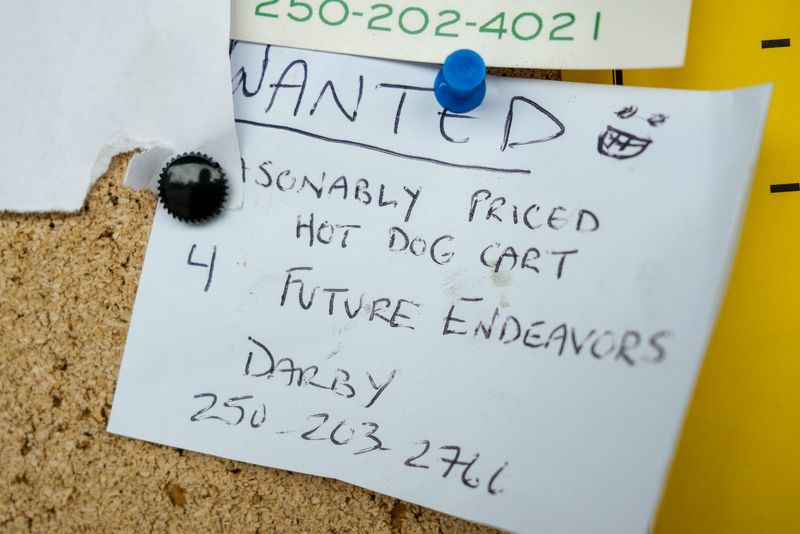 250-202-4021
WANTED
ASONABLY PRICED
HOT DOG CART
4 FUTURE ENDEAVORS
DARBY
250-203-2766